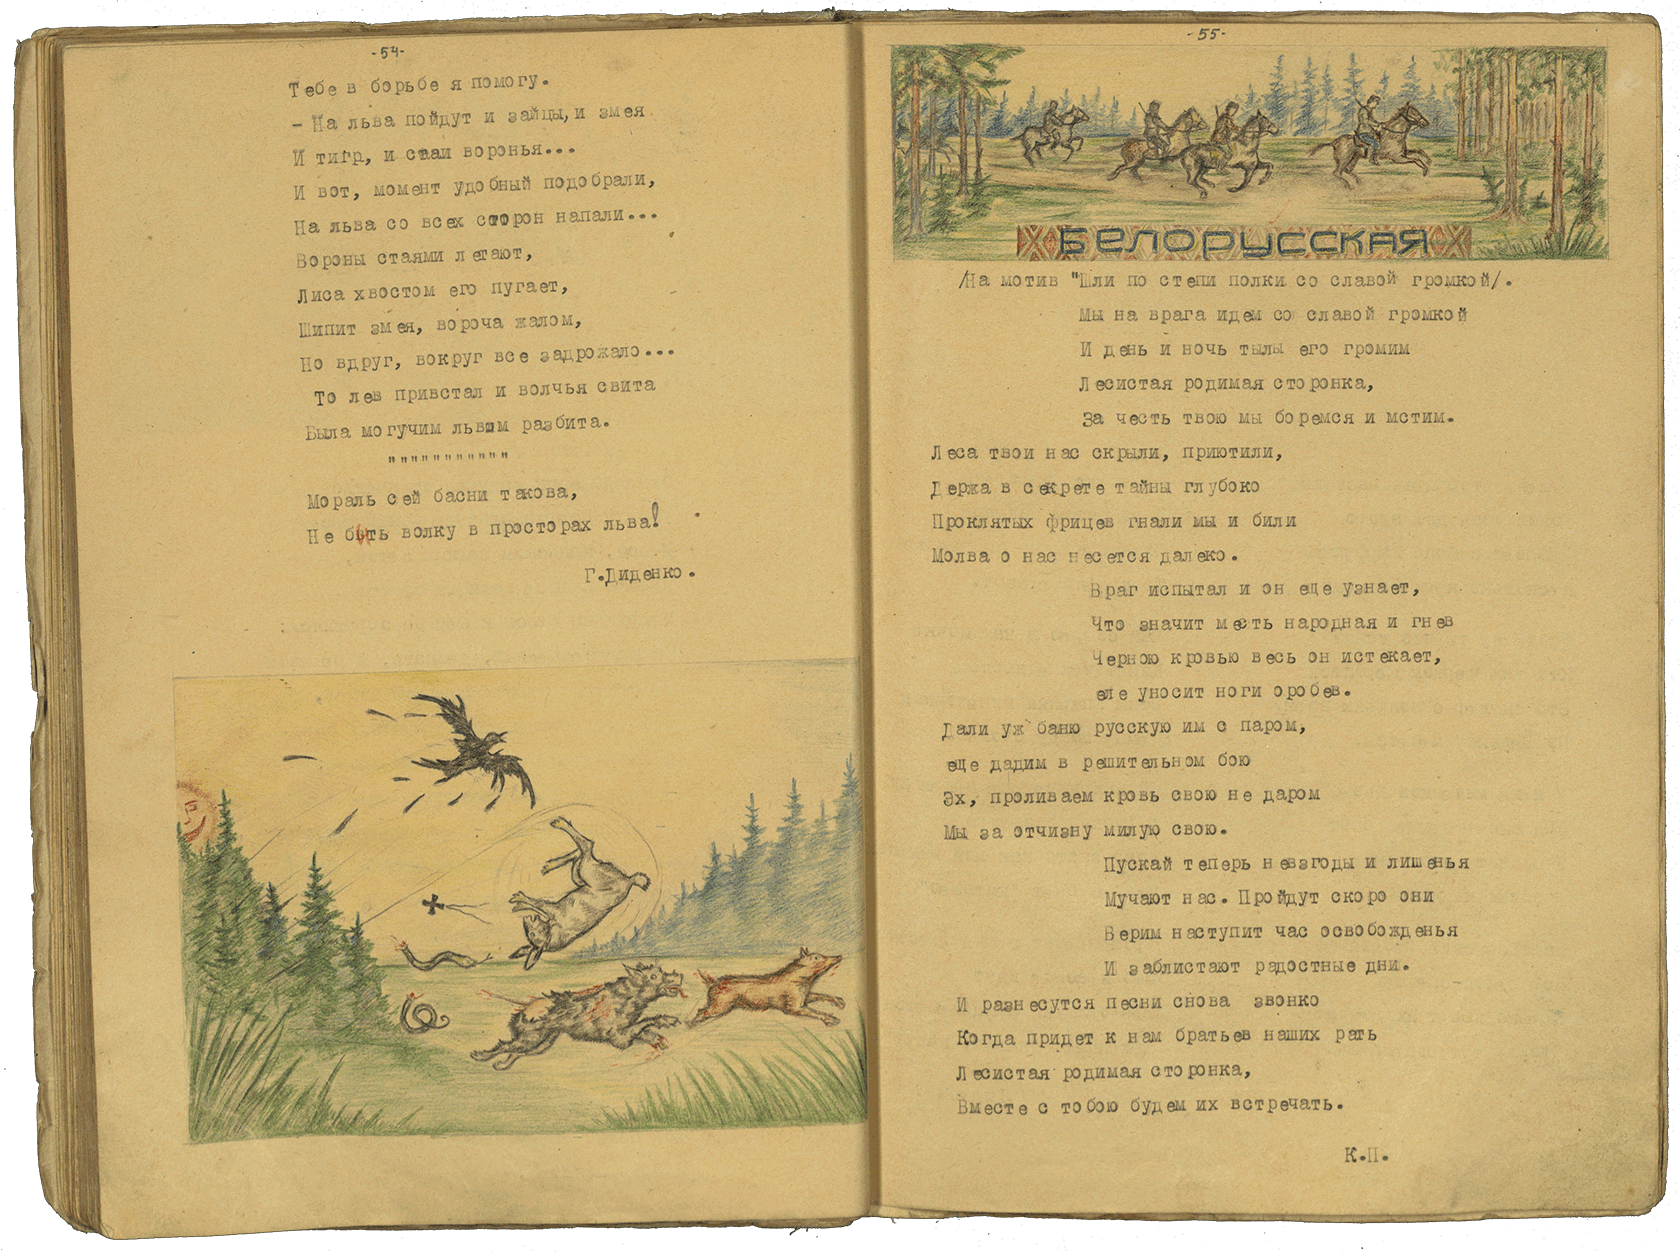 -54-
Тебе в борьбе я помогу.
- На льва пойдут и зайцы, и змея
И тигр, и стаи воронья...
И вот, момент удобный подобрали,
На льва со всех сторон напали...
Вороны стаями летают,
Лиса хвостом его пугает,
Шипит змея, вороча жалом,
Но вдруг, вокруг все задрожало...
То лев привстал и волчья свита
Была могучим львом разбита.
"""""""""""
Мораль сей басни такова,
Не быть волку в просторах льва!
Г.Диденко.
-55-
БЕЛОРУССКАЯ
/На мотив "Шли по степи полки со славой громкой/.
Мы на врага идем со славой громкой
И день и ночь тылы его громим
Лесистая родимая сторонка,
За честь твою мы боремся и мстим.
Леса твои нас скрыли, приютили,
Держа в секрете тайны глубоко
Проклятых фрицев гнали мы и били
Молва о нас несется далеко.
Враг испытал и он еще узнает,
Что значит месть народная и гнев
Черною кровью весь он истекает,
еле уносит ноги оробев.
Дали уж баню русскую им с паром,
еще дадим в решительном бою
Эх, проливаем кровь свою не даром
Мы за отчизну милую свою.
Пускай теперь невзгоды и лишенья
Мучают нас. Пройдут скоро они
Верим наступит час освобожденья
И заблистают радостные дни.
И разнесутся песни снова звонко
Когда придет к нам братьев наших рать
Лесистая родимая сторонка,
Вместе с тобою будем их встречать.
К.П.